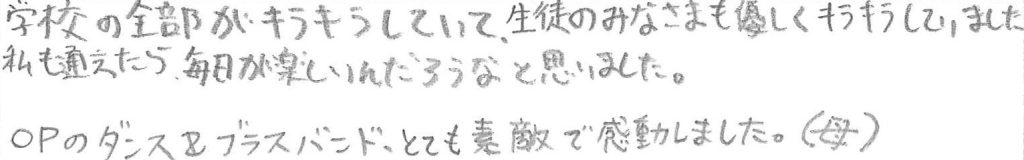 学校の全部がキラキラしていて、生徒のみなさまも優しくキラキラしていました
私も通えたら、毎日が楽しいんだろうなと思いました。
OPのダンス&ブラスバンド、とても素敵で感動しました。(母)